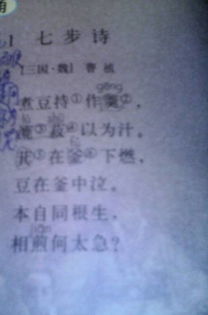 1 七步诗
[三国·魏] 曹植
gēng
煮豆持①作羹②，
③菽④以为汁。
萁⑤在釜⑥下燃，
豆在釜中泣。
本自同根生，
jiān
相煎何太急？